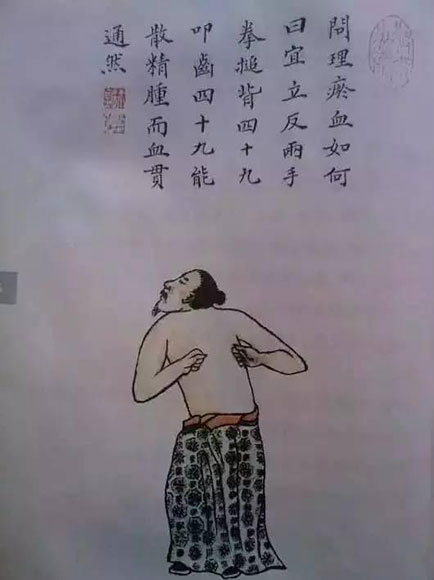 問理瘀血如何
曰宜立反兩手
拳搥背四十九
叩齒四十九能
散精腫而血貫
通然